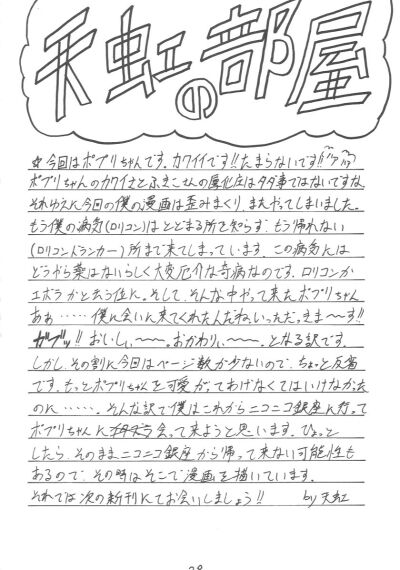 天虹の部屋
☆今回はポプリちゃんです。カワイイです!!たまらないです!!
ポプリちゃんのカワイさとふきこさんの属化度はタダ事ではないですな。
それゆえに今回の僕の漫画は歪みまくり、またやってしまいました。
もう僕の病気(ロリコン)はとどまる所を知らず、もう帰れない
(ロリコンドランカー)所まで来てしまっています。この病気には
どうやら薬はないらしく大変厄介な奇病なのです。ロリコンか
エボラかと云う位に。そして、そんな中やって来たポプリちゃん
あぁ……僕に会いに来てくれたんだね。いっただっきま〜す!!
ガブッ!!おいしい〜〜。おかわりぃ〜〜。となる訳です。
しかし、その割に今回はページ数が少ないので、ちょっと反省
です。もっとポプリちゃんを可愛がってあげなくてはいけなかった
のに……。そんな訳で僕はこれからニコニコ銀座に行って
ポプリちゃんに会って来ようと思います。ひょっと
したら、そのままニコニコ銀座から帰って来ない可能性も
あるので、その時はそこで漫画を描いています。
それでは次の新刊にてお会いしましょう!! by天虹
28